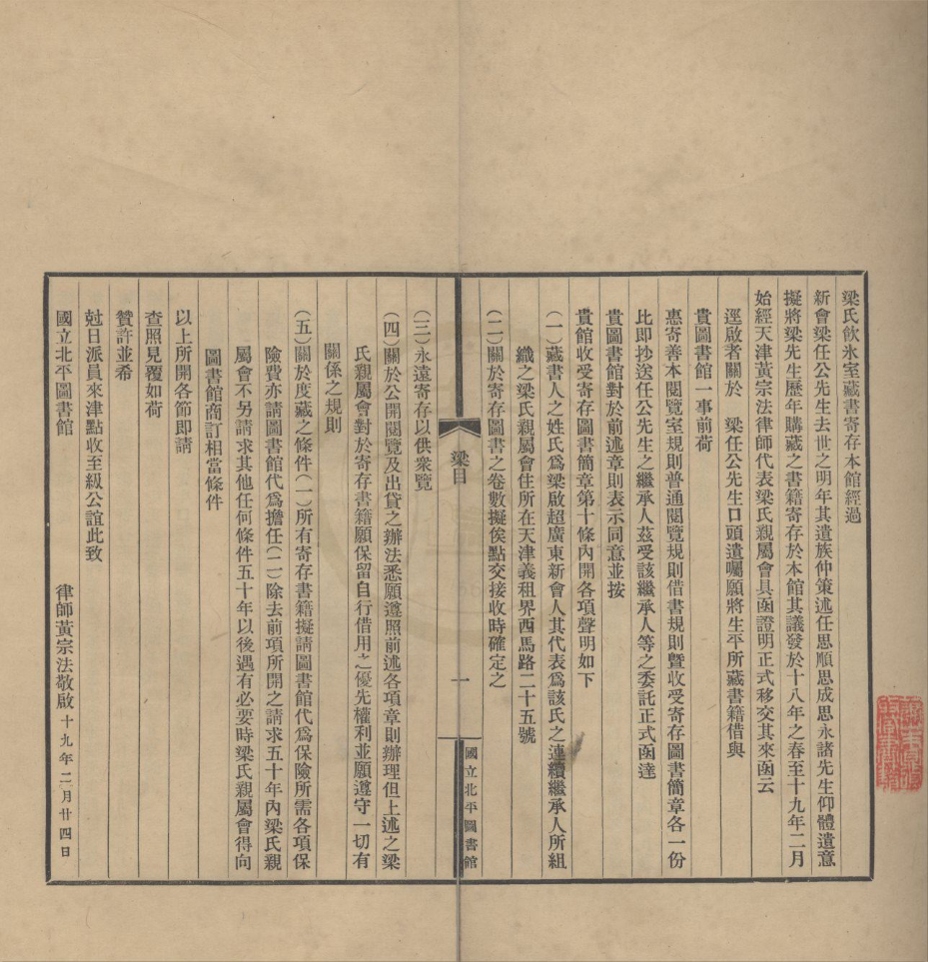 梁氏飲冰室藏書寄存本館經過
新會梁任公先生去世之明年其遺族仲策述任思順思成思永諸先生仰體遺意
擬將梁先生歷年購藏之書籍寄存於本館其議發於十八年之春至十九年二月
始經天津黃宗法律師代表梁氏親屬會具函證明正式移交其來函云
逕啟者關於　梁任公先生口頭遺囑願將生平所藏書籍借與
貴圖書館一事前荷
惠寄善本閱覽室規則普通閱覽規則借書規則暨收受寄存圖書簡章各一份
比即抄送任公先生之繼承人茲受該繼承人等之委託正式函達
貴圖書館對於前述章則表示同意並按
貴館收受寄存圖書簡章第十條內開各項聲明如下
（一）藏書人之姓氏爲梁啟超廣東新會人其代表爲該氏之連續繼承人所組
織之梁氏親屬會住所在天津義租界西馬路二十五號
（二）關於寄存圖書之卷數擬俟點交接收時確定之
梁目
一
國立北平圖書館
（三）永遠寄存以供衆覽
（四）關於公開閱覽及出貸之辦法悉願遵照前述各項章則辦理但上述之梁
氏親屬會對於寄存書籍願保留自行借用之優先權利並願遵守一切有
關係之規則
（五）關於庋藏之條件（一）所有寄存書籍擬請圖書館代爲保險所需各項保
險費亦請圖書館代爲擔任（二）除去前項所開之請求五十年內梁氏親
屬會不另請求其他任何條件五十年以後遇有必要時梁氏親屬會得向
圖書館商訂相當條件
以上所開各節即請
查照見覆如荷
贊許並希
尅日派員來津點收至級公誼此致
國立北平圖書館
律師黃宗法敬啟十九年二月廿四日